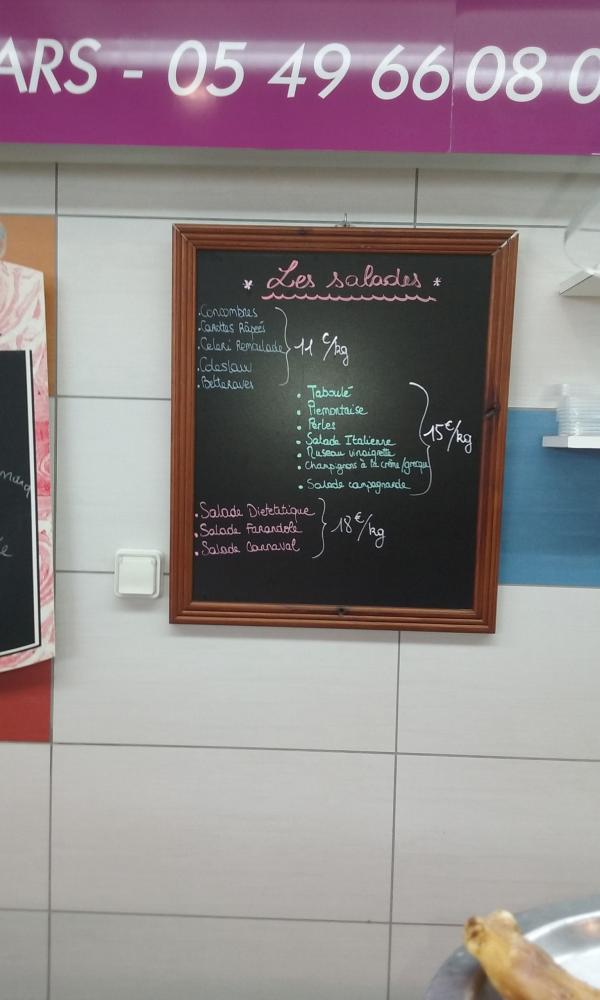 ARS - 05 49 66 08 0
* Les salades *
. Concombres
. Carottes Râpées
. Celeri Remoulade
. Coleslaw
. Betteraves
11 €/kg
. Taboulé
. Piemontaise
. Perles
. Salade Italienne
. Museau vinaigrette
. Champignons à la crème/grecque
. Salade campagnarde
15 €/kg
. Salade Dietetatique
. Salade Farandole
. Salade Carnaval
18 €/kg